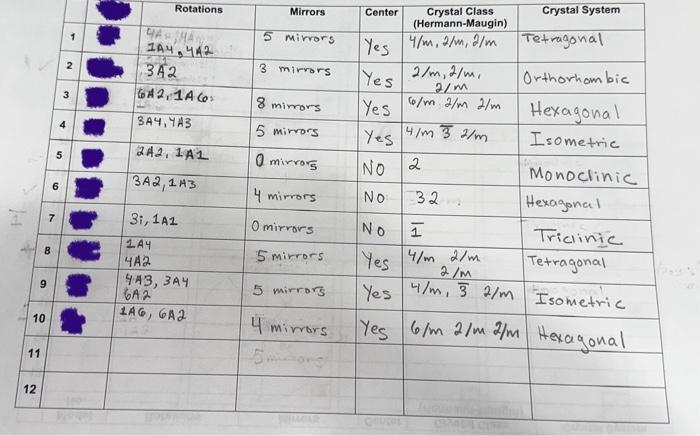 Rotations Mirrors Center Crystal Class (Hermann-Maugin) Crystal System
1 1A4, 4A2 5 mirrors Yes 4/m, 2/m, 2/m Tetragonal
2 3A2 3 mirrors Yes 2/m, 2/m, 2/m Orthorhombic
3 6A2, 1A6 8 mirrors Yes 6/m 2/m 2/m Hexagonal
4 3A4, 4A3 5 mirrors Yes 4/m 3̅ 2/m Isometric
5 2A2, 1A1 0 mirrors NO 2 Monoclinic
6 3A2, 1A3 4 mirrors NO 32 Hexagonal
7 3i, 1A1 0 mirrors No 1̅ Triclinic
8 1A4 4A2 5 mirrors Yes 4/m 2/m 2/m Tetragonal
9 4A3, 3A4 6A2 5 mirrors Yes 4/m, 3̅ 2/m Isometric
10 1A6, 6A2 4 mirrors Yes 6/m 2/m 2/m Hexagonal
11
12